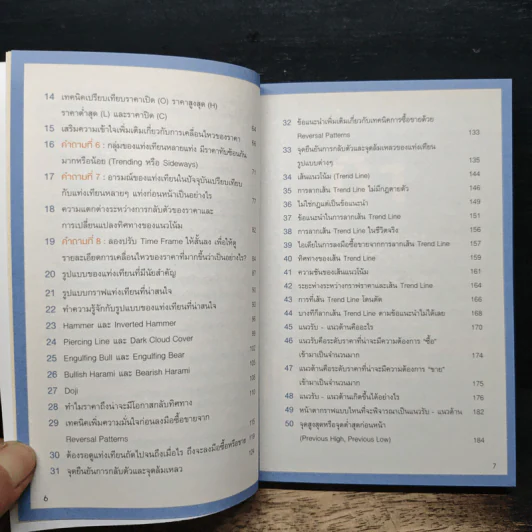 14 เทคนิคเปรียบเทียบราคาเปิด (O) ราคาสูงสุด (H)
ราคาต่ำสุด (L) และราคาปิด (C)
15 เสริมความเข้าใจเพิ่มเติมเกี่ยวกับการเคลื่อนไหวของราคา
16 คำถามที่ 6 : กลุ่มของแท่งเทียนหลายแท่ง มีราคาทับซ้อนกัน
มากหรือน้อย (Trending หรือ Sideways)
17 คำถามที่ 7 : อารมณ์ของแท่งเทียนในปัจจุบันเปรียบเทียบ
กับแท่งเทียนหลายๆ แท่งก่อนหน้าเป็นอย่างไร
18 ความแตกต่างระหว่างการกลับตัวของราคาและ
การเปลี่ยนแปลงทิศทางของแนวโน้ม
19 คำถามที่ 8 : ลองปรับ Time Frame ให้สั้นลง เพื่อให้ดู
รายละเอียดการเคลื่อนไหวของราคาที่มากขึ้นว่าเป็นอย่างไร?
20 รูปแบบของแท่งเทียนที่มีนัยสำคัญ
21 รูปแบบกราฟแท่งเทียนที่น่าสนใจ
22 ทำความรู้จักกับรูปแบบของแท่งเทียนที่น่าสนใจ
23 Hammer และ Inverted Hammer
24 Piercing Line และ Dark Cloud Cover
25 Engulfing Bull และ Engulfing Bear
26 Bullish Harami และ Bearish Harami
27 Doji
28 ทำไมราคาถึงน่าจะมีโอกาสกลับทิศทาง
29 เทคนิคเพิ่มความมั่นใจก่อนลงมือซื้อขายจาก
Reversal Patterns
30 ต้องรอดูแท่งเทียนถัดไปจนถึงเมื่อไร ถึงจะลงมือซื้อหรือขาย
31 จุดยืนยันการกลับตัวและจุดล้มเหลว
6
32 ข้อแนะนำเพิ่มเติมเกี่ยวกับเทคนิคการซื้อขายด้วย
Reversal Patterns 133
33 จุดยืนยันการกลับตัวและจุดล้มเหลวของแท่งเทียน
รูปแบบต่างๆ 135
34 เส้นแนวโน้ม (Trend Line) 144
35 การลากเส้น Trend Line ไม่มีกฎตายตัว 146
36 ไม่ใช่กฎแต่เป็นข้อแนะนำ 149
37 ข้อแนะนำในการลากเส้น Trend Line 151
38 การลากเส้น Trend Line ในชีวิตจริง 156
39 ไอเดียในการลงมือซื้อขายจากการลากเส้น Trend Line 157
40 ทิศทางของเส้น Trend Line 159
41 ความชันของเส้นแนวโน้ม 161
42 ระยะห่างระหว่างกราฟราคาและเส้น Trend Line 164
43 การที่เส้น Trend Line โดนตัด 166
44 บางทีก็ลากเส้น Trend Line ตามข้อแนะนำไม่ได้เลย 168
45 แนวรับ - แนวต้านคืออะไร 170
46 แนวรับคือระดับราคาที่น่าจะมีความต้องการ "ซื้อ"
เข้ามาเป็นจำนวนมาก 174
47 แนวต้านคือระดับราคาที่น่าจะมีความต้องการ "ขาย"
เข้ามาเป็นจำนวนมาก 175
48 แนวรับ - แนวต้านเกิดขึ้นได้อย่างไร 176
49 หน้าตากราฟแบบไหนที่จะพิจารณาเป็นแนวรับ - แนวต้าน 182
50 จุดสูงสุดหรือจุดต่ำสุดก่อนหน้า
(Previous High, Previous Low) 184
7